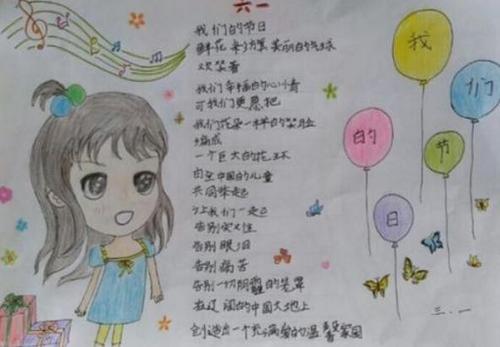 六一
我们的节日
鲜花 彩旗 美丽的气球
欢笑着
我们幸福的心情
可我们更愿把
我们花朵一样的笑脸
编成
一个巨大的花环
由全中国的儿童
共同举起
让我们一起
告别
告别 眼泪
告别 痛苦
告别一切阴霾的笼罩
在辽阔的中国大地上
创造出一个充满爱的温馨家园
我
们
的
节
日
三.一